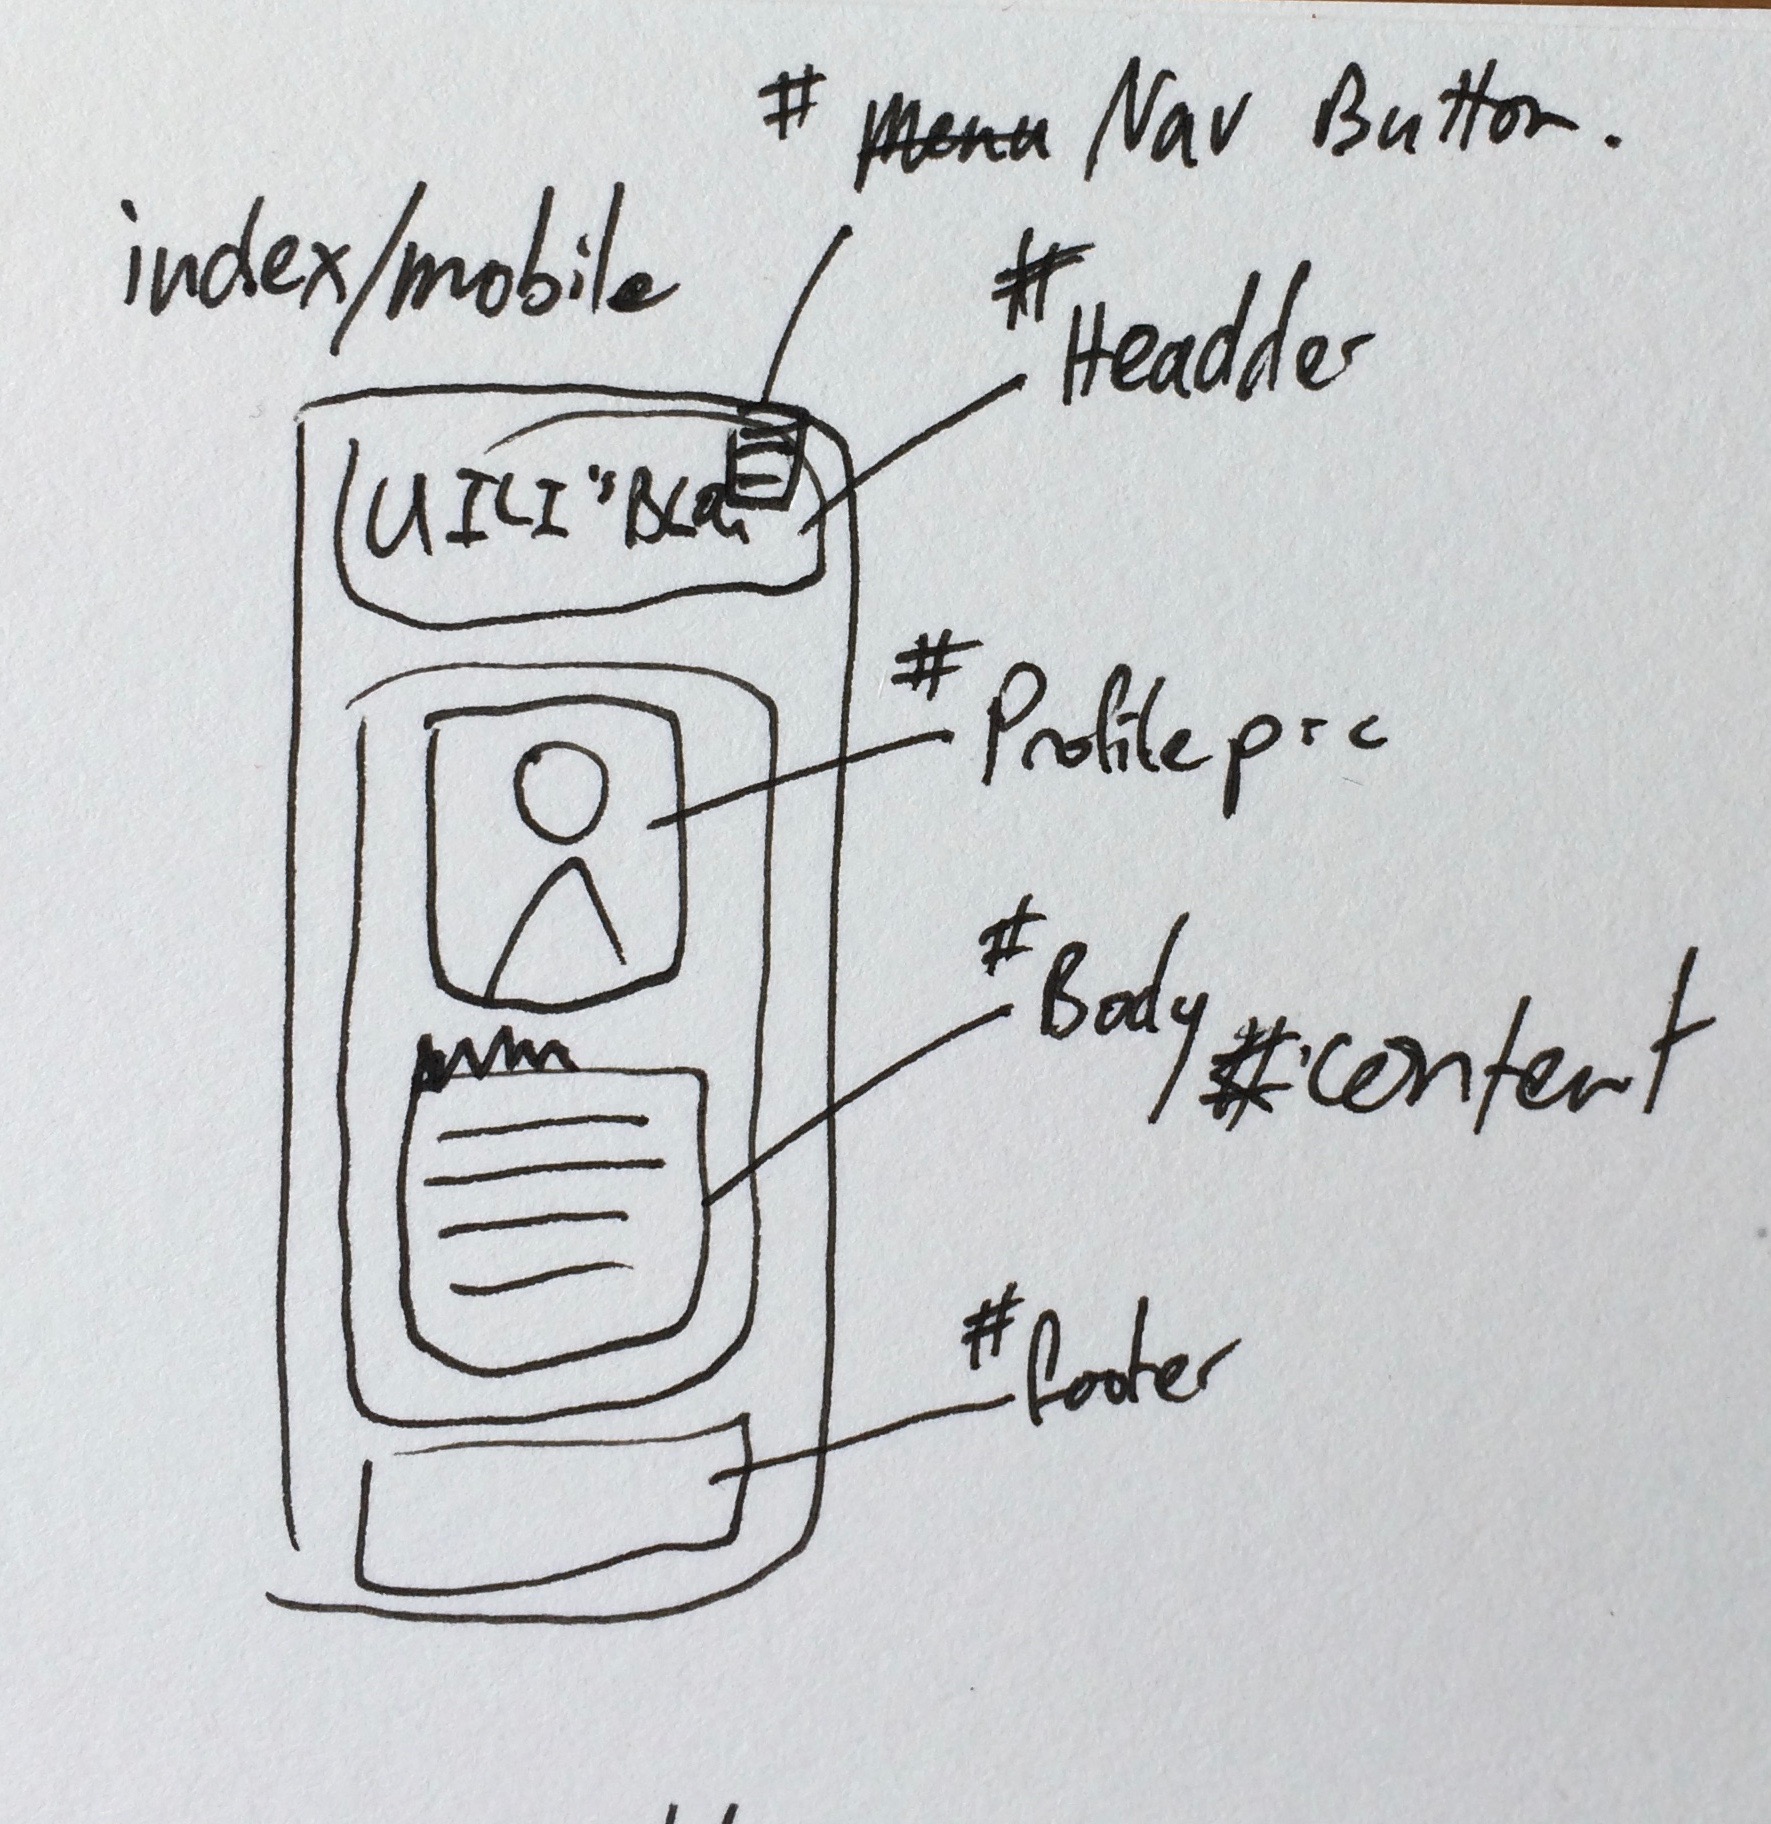 # Menu Nav Button.
index/mobile
# Headder
UILI's
# Profile pic
# Body #content
# footer